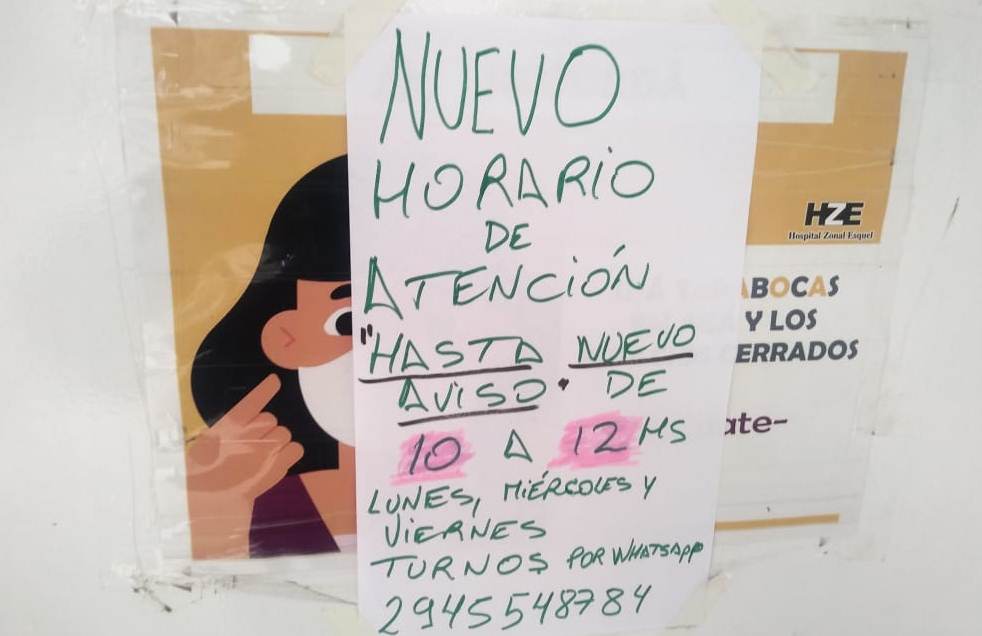 NUEVO
HORARIO
DE
ATENCIÓN
"HASTA NUEVO
AVISO. DE
10 A 12 HS
LUNES, MIÉRCOLES Y
VIERNES
TURNOS POR WHATSAPP
2945548784
HZE
Hospital Zonal Esquel
ABOCAS
Y LOS
ERRADOS
ate-